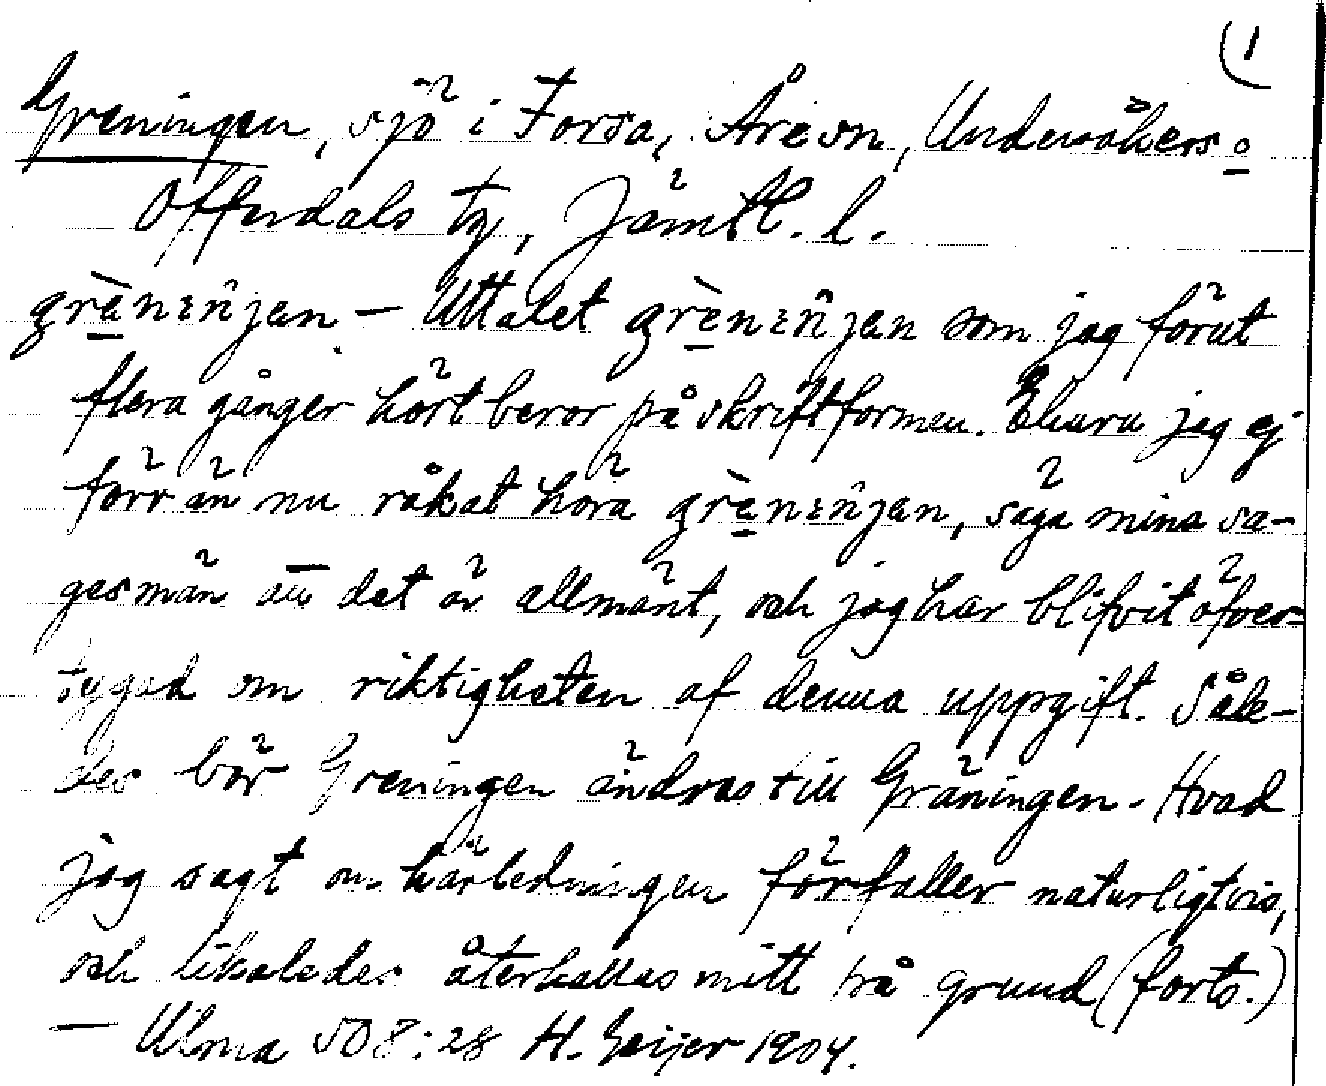 (1
Greningen, sjö i Forsa, Åre sn, Undersåkers o
Offerdals tg, Jämtl. l.
grèneŋ̂en – Uttalet grèneŋ̂en som jag förut
flera gånger hört beror på skriftformen. Ehuru jag ej
förr än nu råkat höra grèneŋ̂en, säga mina sa-
gesmän att det är allmänt, och jag har blifvit öfver-
tygad om riktigheten af denna uppgift. Såle-
des bör Greningen ändras till Gräningen. Hvad
jag sagt om härledningen förfaller naturligtvis,
och likaledes återkallas mitt på grund (forts.)
— Ulma 508:28 H. Geijer 1904.